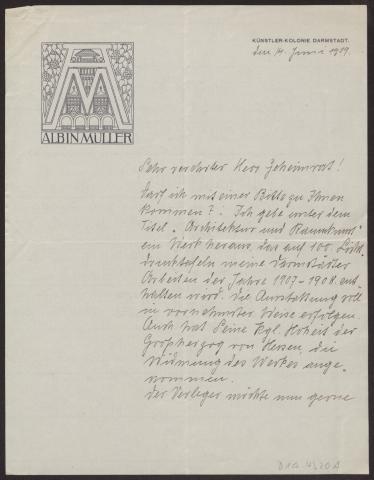 KÜNSTLER-KOLONIE DARMSTADT.
den 14. Juni 1909.
ALBINMÜLLER
Sehr verehrter Herr Geheimrat!
Darf ich mit einer Bitte zu Ihnen
kommen? Ich gebe unter dem
Titel „Architektur und Raumkunst"
ein Werk heraus, das auf 100 Licht-
drucktafeln meine Darmstädter
Arbeiten der Jahre 1907-1908 ent-
halten wird. Die Ausstattung soll
in vornehmster Weise erfolgen.
Auch hat Seine Kgl. Hoheit der
Großherzog von Hessen, die
Widmung des Werkes ange-
nommen.
Der Verleger möchte nun gerne